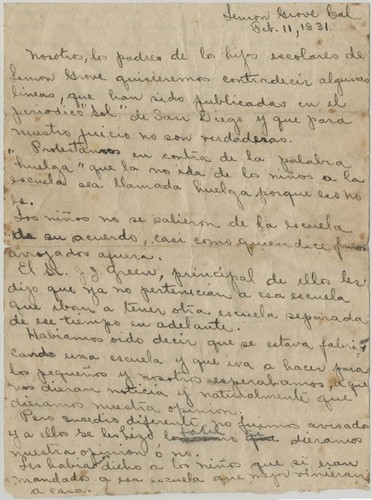 Lemon Grove Cal
Oct. 11, 1831.
Nosotros, los padres de los hijos escolares de
Lemon Grove quisieremos contradecir algunas
lineas, que han sido publicadas en el
periodico "Sol" de San Diego y que para
nuestro juicio no son verdaderas.
"Protestamos en contra de la palabra
"huelga" que la no ida de los niños a la
escuela sea llamada huelga porque eso no
es.
Los niños no se salieron de la escuela
de su acuerdo, casi como quien dice fueron
arrojados afuera.
El Sr. J. J. Green, principal de ellos les
dijo que ya no pertenician a esa escuela
que iban a tener otra escuela separada
de ese tiempo en adelante.
Habiamos oido decir que se estava fabri-
cando una escuela y que iva a hacer para
los pequeños y nosotros esperabamos a que
nos dieran noticia y naturalmente que
dieramos nuestra opinion.
Pero sucedio diferente, no fuimos avisados
y a ellos se les hizo facil que dieramos
nuestra opinion o no.
Les habia dicho a los niños que si eran
mandados a esa escuela que mejor vinieran
a casa.